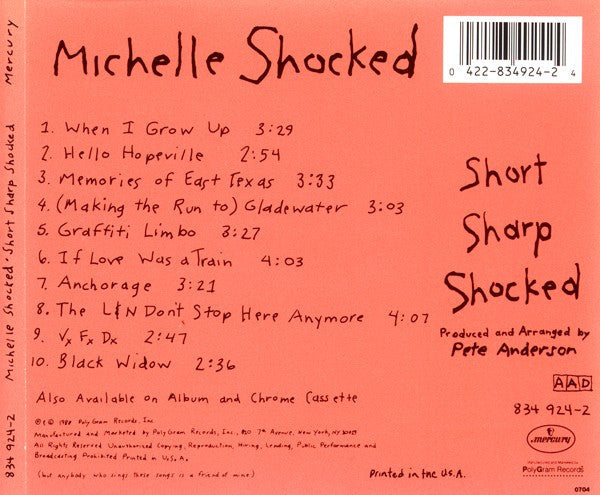 Michelle Shocked
0 422-834924-2 4
1. When I Grow Up 3:29
2. Hello Hopeville 2:54
3. Memories of East Texas 3:33
4. (Making the Run to) Gladewater 3:03
5. Graffiti Limbo 3:27
6. If Love Was a Train 4:03
7. Anchorage 3:21
8. The L&N Don't Stop Here Anymore 4:07
9. Vx Fx Dx 2:47
10. Black Widow 2:36
Also Available on Album and Chrome Cassette
℗ © 1988 PolyGram Records, Inc.
Manufactured and Marketed by PolyGram Records, Inc., 810 7th Avenue, New York, NY 10019
All Rights Reserved Unauthorized Copying, Reproduction, Hiring, Lending, Public Performance and
Broadcasting Prohibited Printed in U.S.A.
(but anybody who sings these songs is a friend of mine)
Printed in the U.S.A.
Short
Sharp
Shocked
Produced and Arranged by
Pete Anderson
AAD
834 924-2
mercury
Manufactured and Marketed by
PolyGram Records
0704
834 924-2 Michelle Shocked • Short Sharp Shocked Mercury